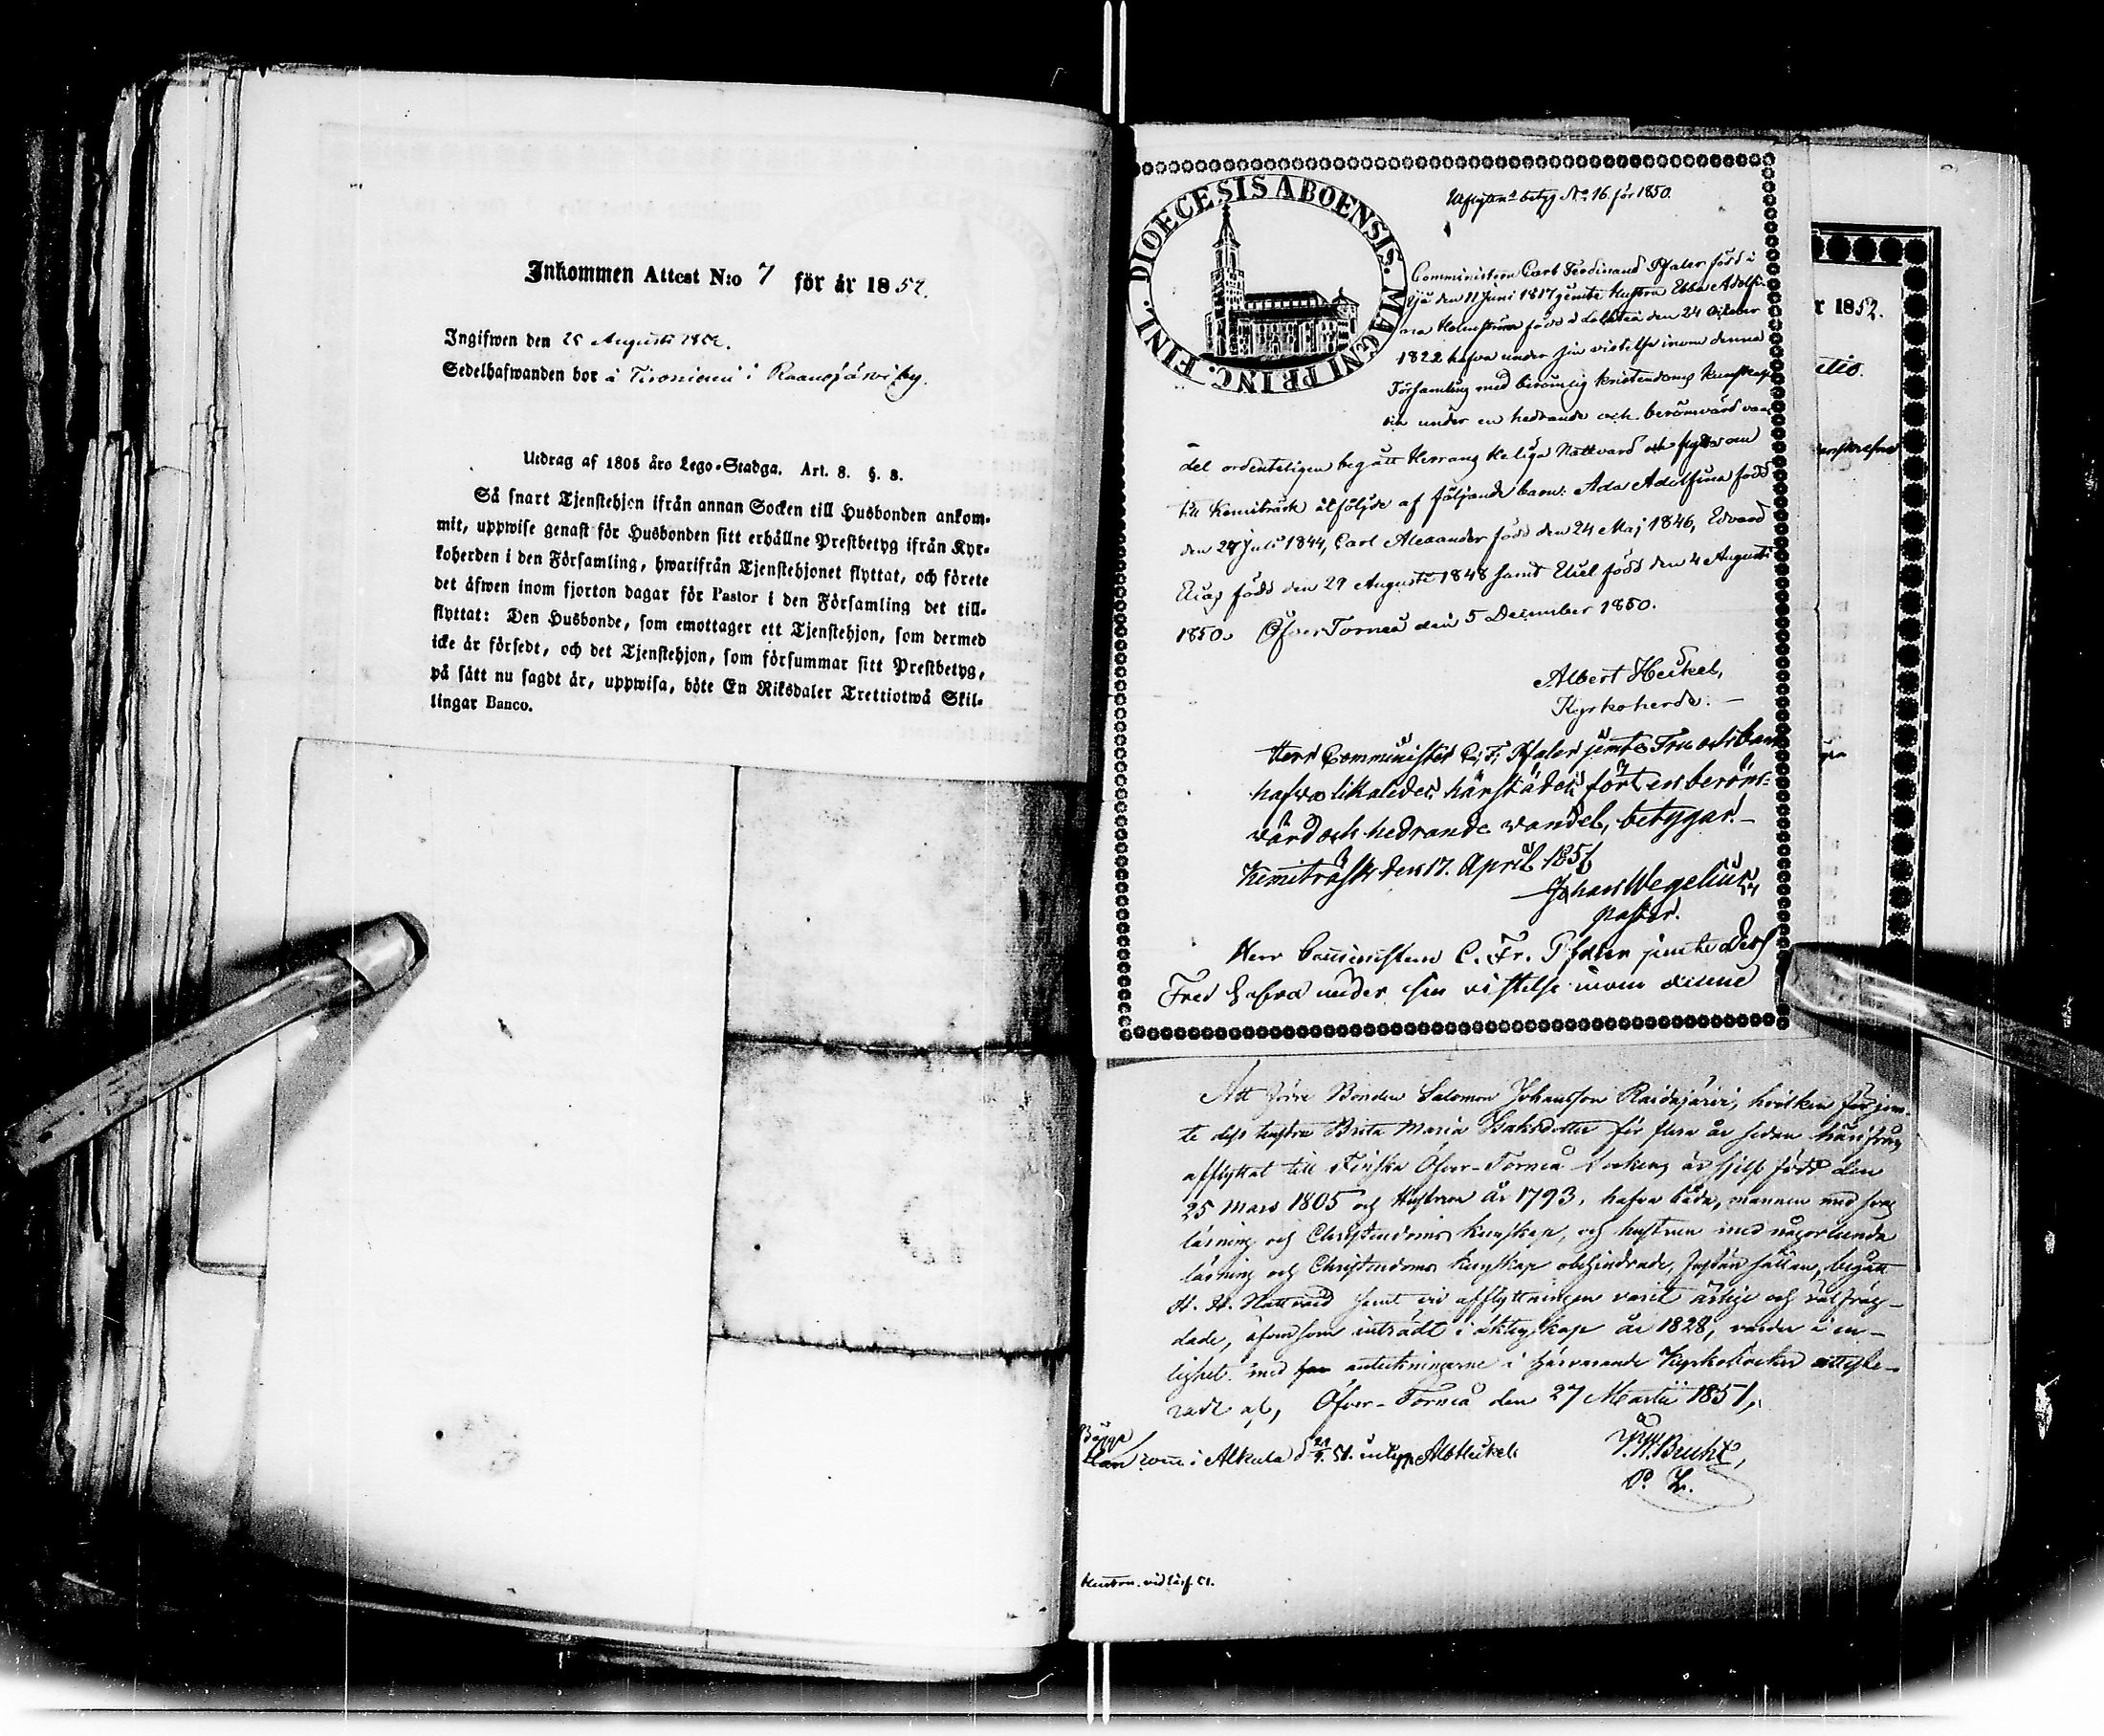 Inkommen Attest N:o 7 för år 1852.
Ingifwen den 25 Augusti 1852.
Sedelhafwanden bor å Tironiemi i Raanojärwi by.
Utdrag af 1805 års Lego-Stadga. Art. 8. §. 8.
Så snart Tjenstehjon ifrån annan Socken till Husbonden ankom-
mit, uppwise genast för Husbonden sitt erhållne Prestbetyg ifrån Kyr-
koherden i den Församling, hwarifrån Tjenstehjonet flyttat, och förete
det äfwen inom fjorton dagar för Pastor i den Församling det till-
flyttat: Den Husbonde, som emottager ett Tjenstehjon, som dermed
icke är försedt, och det Tjenstehjon, som försummar sitt Prestbetyg,
på sätt nu sagdt är, uppwisa, böte En Riksdaler Trettiotwå Skil-
lingar Banco.
DIOECESIS ABOENSIS. MAGNI PRINC. FINL.
betyg No 16 för 1850.
Comministern Carl Ferdinand Pfaler född i
Ijå den 11 Juni 1817 jemte hustru Ebba Adolfi-
na Holmström född i Lochteå den 24 October
1822 hafva under sin vistelse inom denna
Församling med berömlig kristendoms kunskap
och under en hedrande och berömvärd van-
del ordenteligen begått Herrans Heliga Nattvard och flyttar nu
till Kemiträsk åtföljde af följande barn: Ada Adolfina född
den 24 Juli 1844, Carl Alexander född den 24 Maj 1846, Edvard
Elias född den 29 Augusti 1848 samt Uriel född den 4 Augusti
1850. ÖfverTorneå den 5 December 1850.
Albert Heikel,
Kyrkoherde.
Herr Comminister C. F. Pfaler jemte Fru och barn
hafva likaledes härstädes fört en beröm-
värd och hedrande vandel, betygar.
Kemiträsk den 17. April 1851
Johan Wegelius
pastor.
Herr Comministern C. Fr. Pfaler jemte dess
Fru hafva under sin vistelse inom denne
r 1852.
Att förre Bonden Salomon Johansson Raidajärvi, hvilken för jem-
te dess hustru Brita Maria Isaksdotter för flera år sedan härifrån
afflyttat till Finska Öfver-Torneå Socken, är sjelf född den
25 Mars 1805 och Hustrun år 1793, hafva båda, mannen med svag
läsning och Christendoms kunskap, och hustrun med någorlunda
läsning och Christendoms kunskap obehindrade, fastän sällan, begått
H. H. Nattvard samt vid afflyttningen varit ärlige och välfräj-
dade, äfvensom inträdt i äktenskap år 1828, varder i en-
lighet med anteckningarne i härvarande Kyrkoböcker atteste-
radt af, Öfver-Torneå den 27 Martii 1851,
i Alkula d 21/9. 51. intygar Alb Heikel.
J. W. Brukt,
P. L.